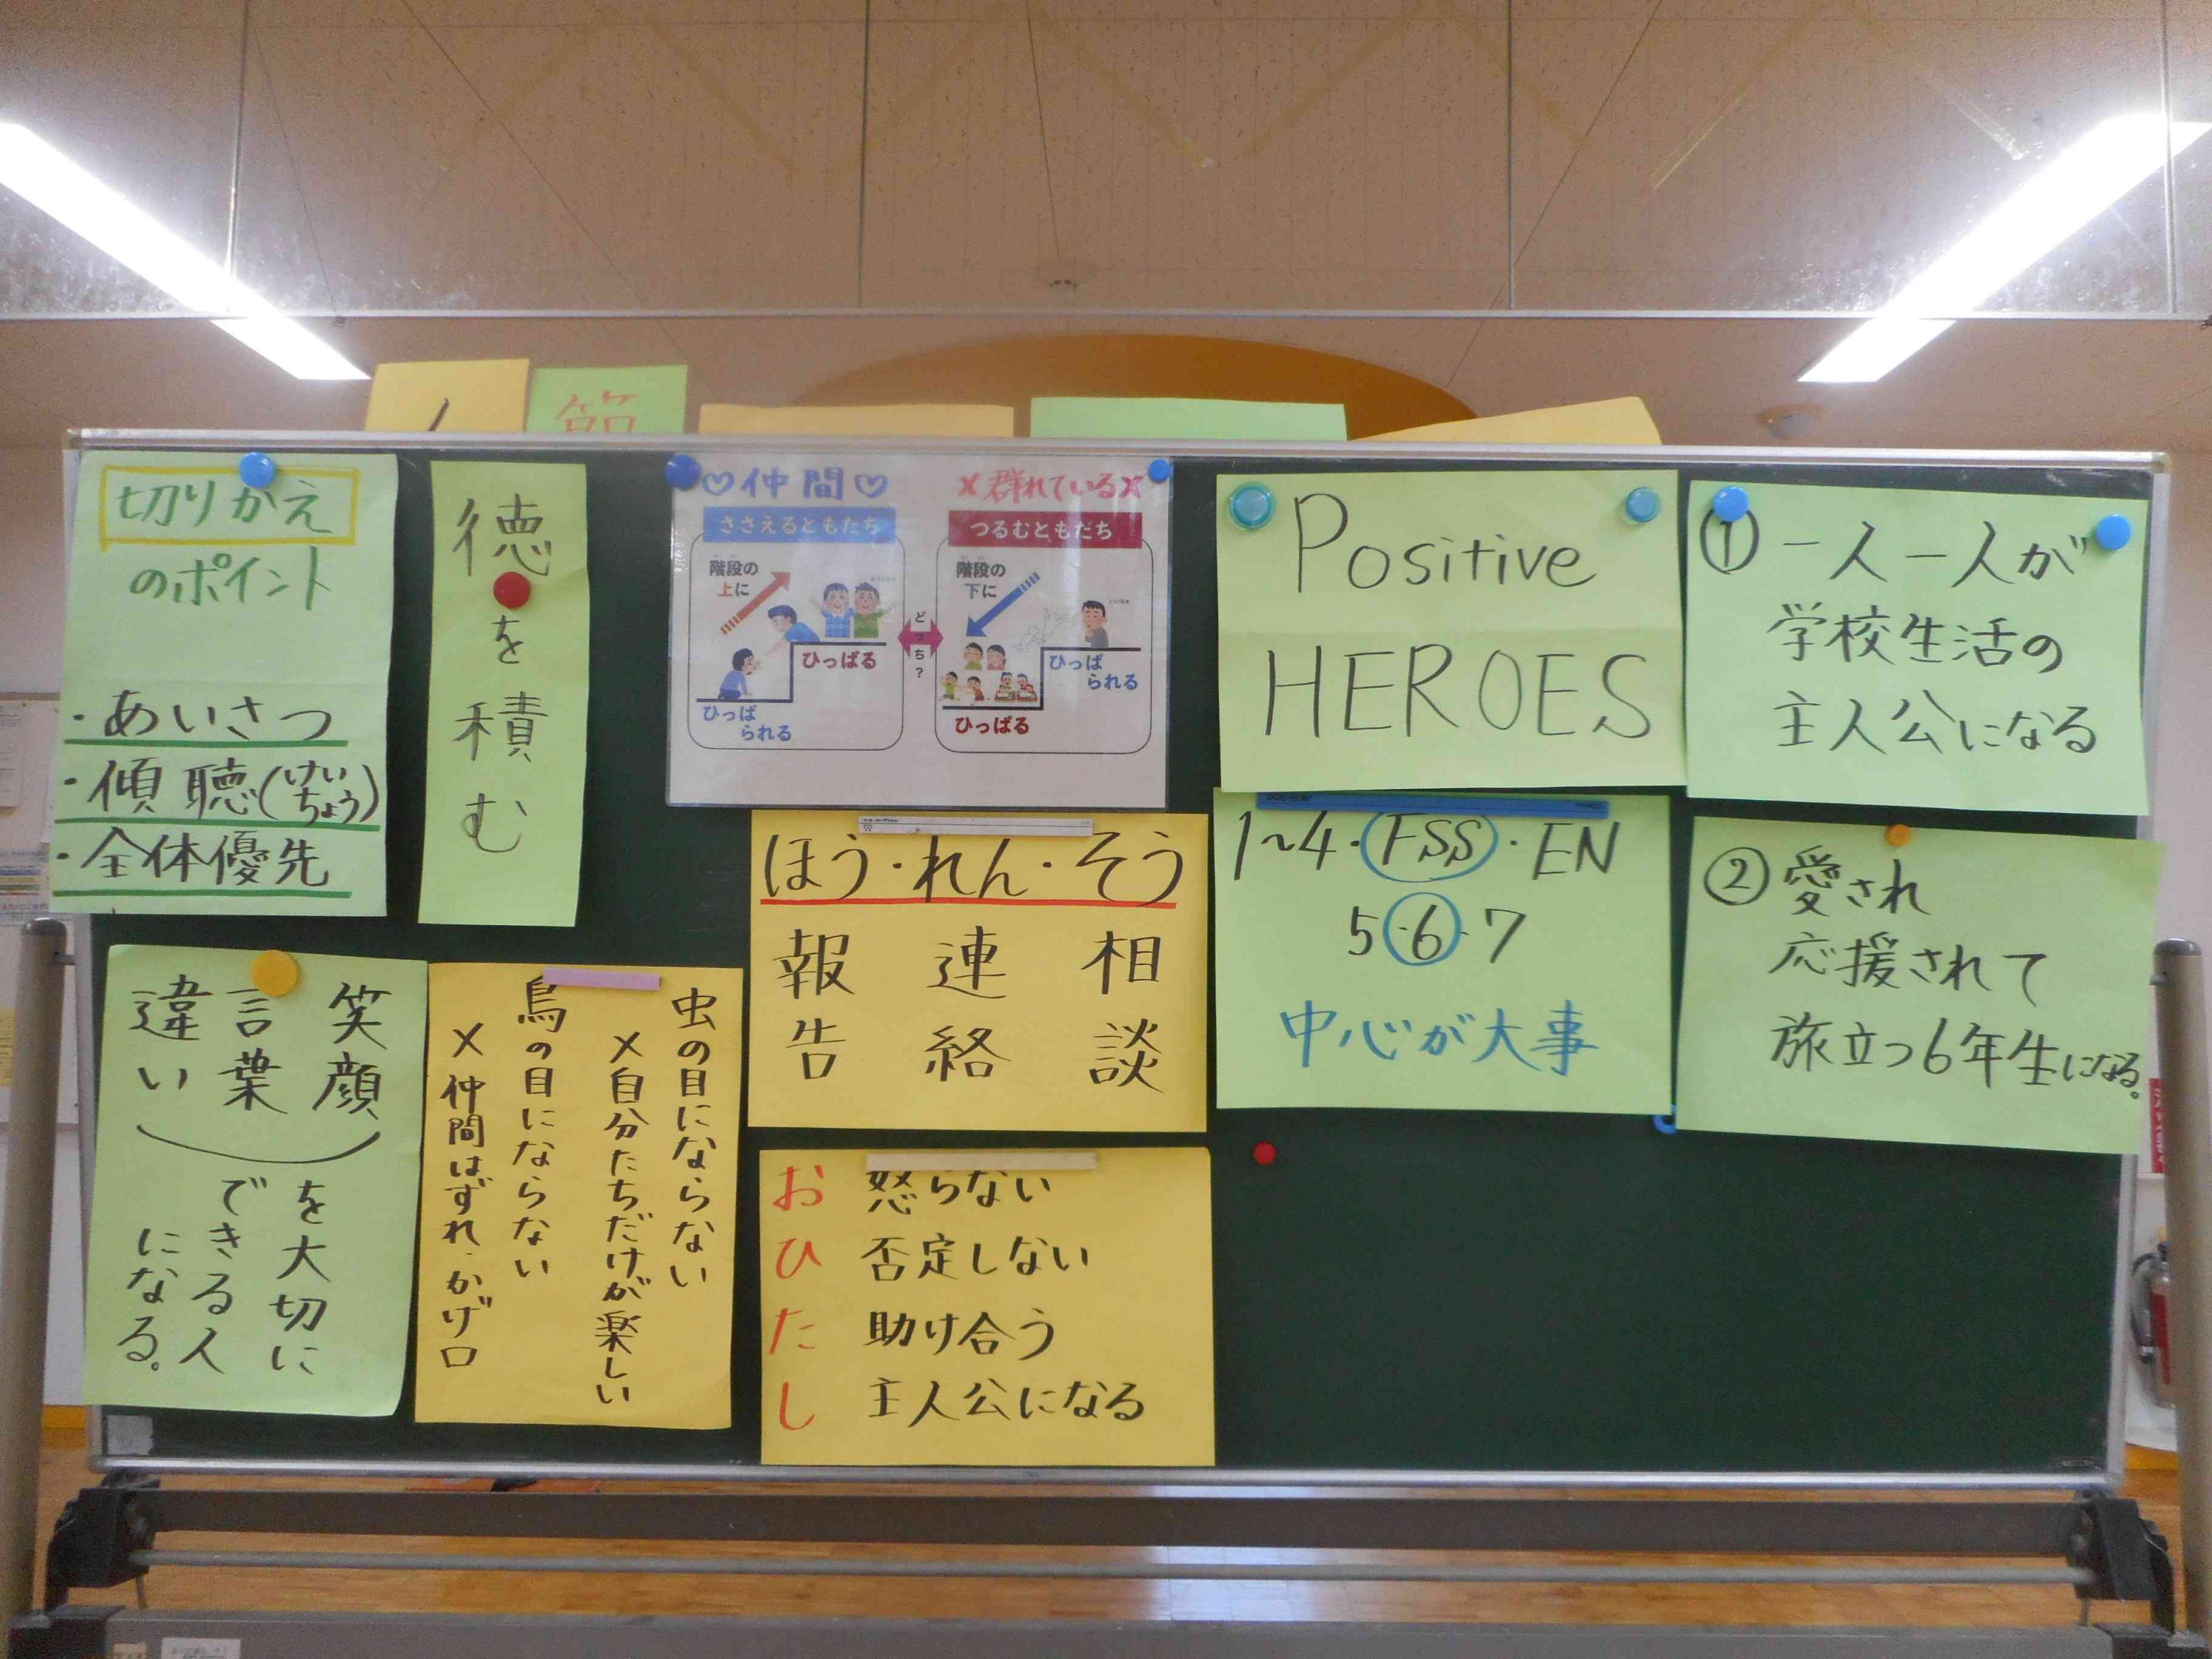 切りかえ
のポイント
・あいさつ
・傾聴(けいちょう)
・全体優先
徳を積む
♡仲間♡
ささえるともだち
階段の
上に
ひっぱる
ひっぱ
られる
どっち?
×群れている×
つるむともだち
階段の
下に
ひっぱ
られる
ひっぱる
Positive
HEROES
①一人一人が
学校生活の
主人公になる
1~4・FSS・EN
5・6・7
中心が大事
②愛され
応援されて
旅立つ6年生になる。
ほう・れん・そう
報告
連絡
相談
笑顔
言葉
違い
を大切に
できる人
になる。
虫の目にならない
×自分たちだけが楽しい
鳥の目にならない
×仲間はずれ・かげ口
お 怒らない
ひ 否定しない
た 助け合う
し 主人公になる